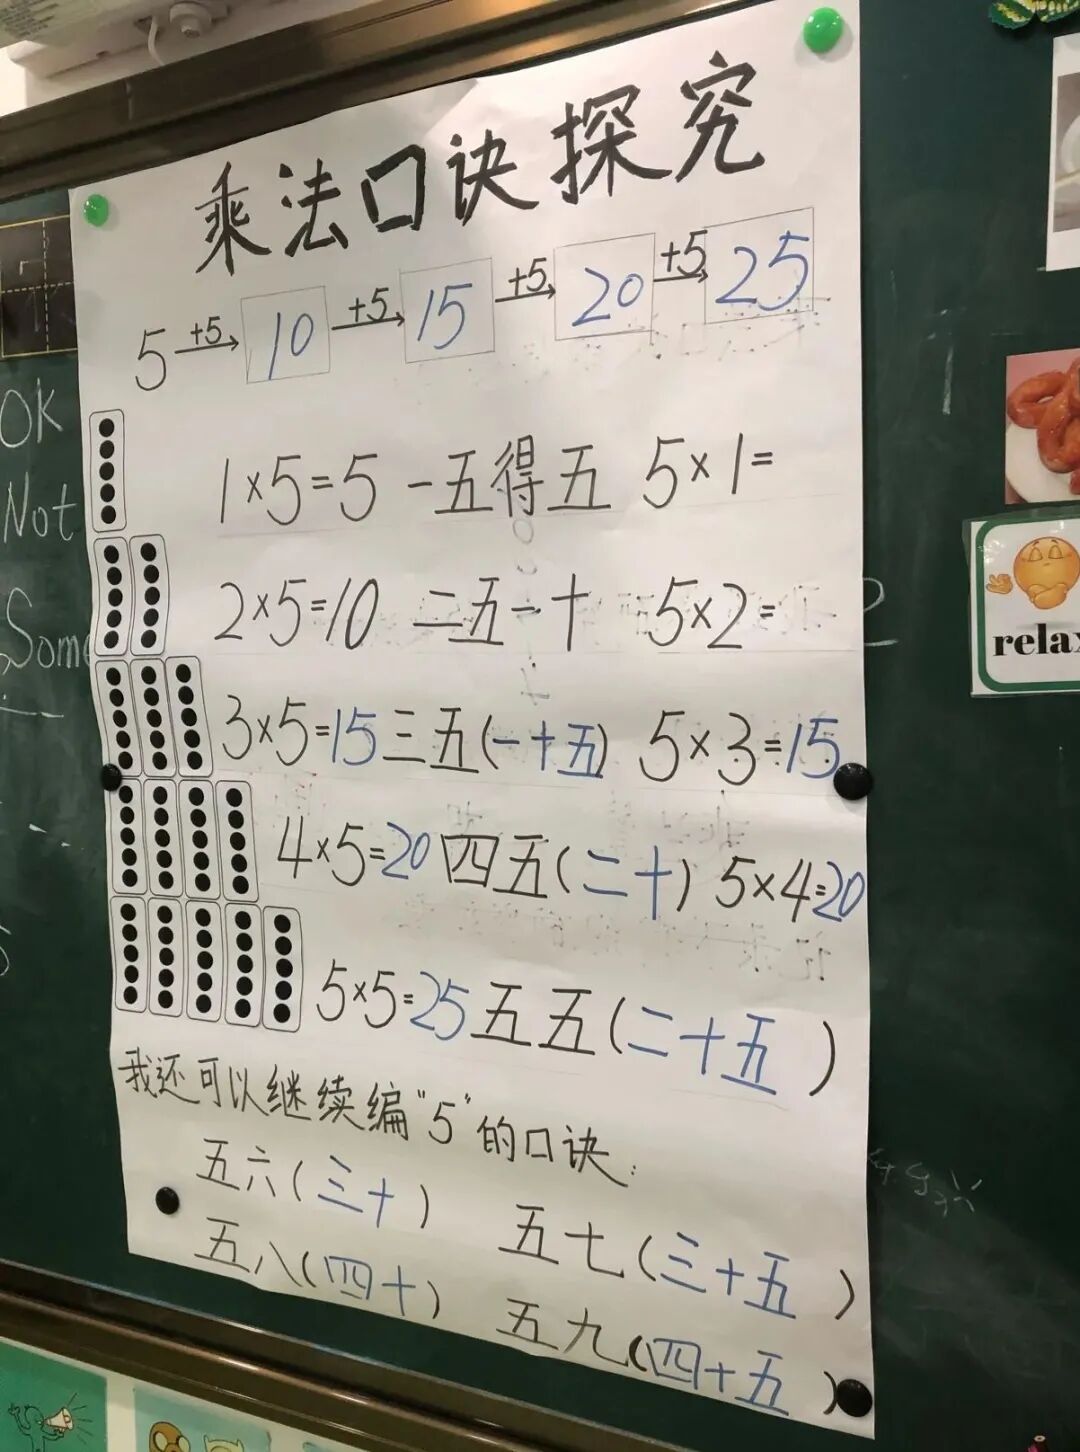 乘法口诀探究
5 +5→ 10 +5→ 15 +5→ 20 +5→ 25
1×5=5 一五得五 5×1=
2×5=10 二五一十 5×2=
3×5=15 三五(一十五) 5×3=15
4×5=20 四五(二十) 5×4=20
5×5=25 五五(二十五)
我还可以继续编“5”的口诀:
五六(三十) 五七(三十五)
五八(四十) 五九(四十五)
OK
Not
Some
relax